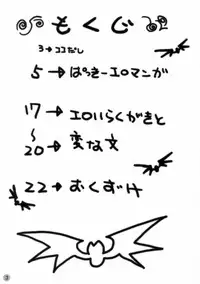 もくじ
3→ココだし
5→ぱっきーエロマンガ
17→エロいらくがきと
〜
20→変な文
22→おくずけ
3